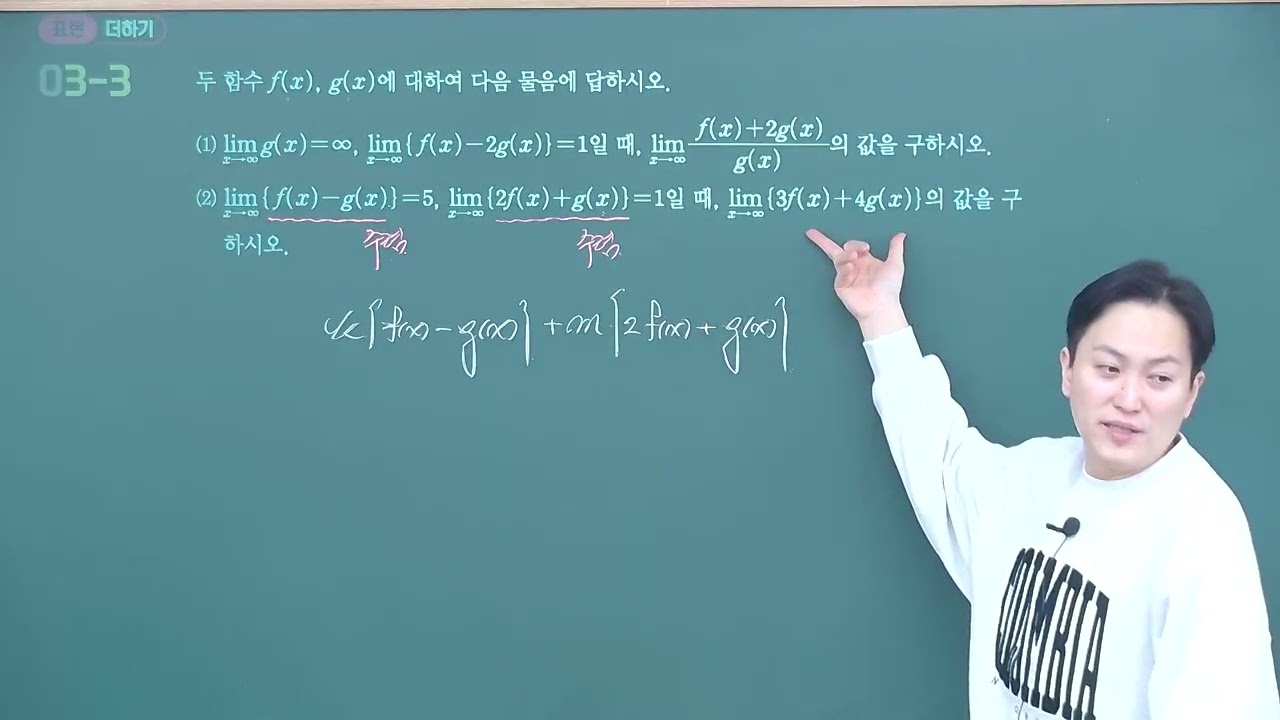 표현 더하기
03-3
두 함수 f(x), g(x)에 대하여 다음 물음에 답하시오.
(1) lim_{x→∞} g(x)=∞, lim_{x→∞} {f(x)-2g(x)}=1일 때, lim_{x→∞} \frac{f(x)+2g(x)}{g(x)}의 값을 구하시오.
(2) lim_{x→∞} {f(x)-g(x)}=5, lim_{x→∞} {2f(x)+g(x)}=1일 때, lim_{x→∞} {3f(x)+4g(x)}의 값을 구
하시오.
수렴 수렴
k{f(x)-g(x)}+m{2f(x)+g(x)}
COLUMBIA